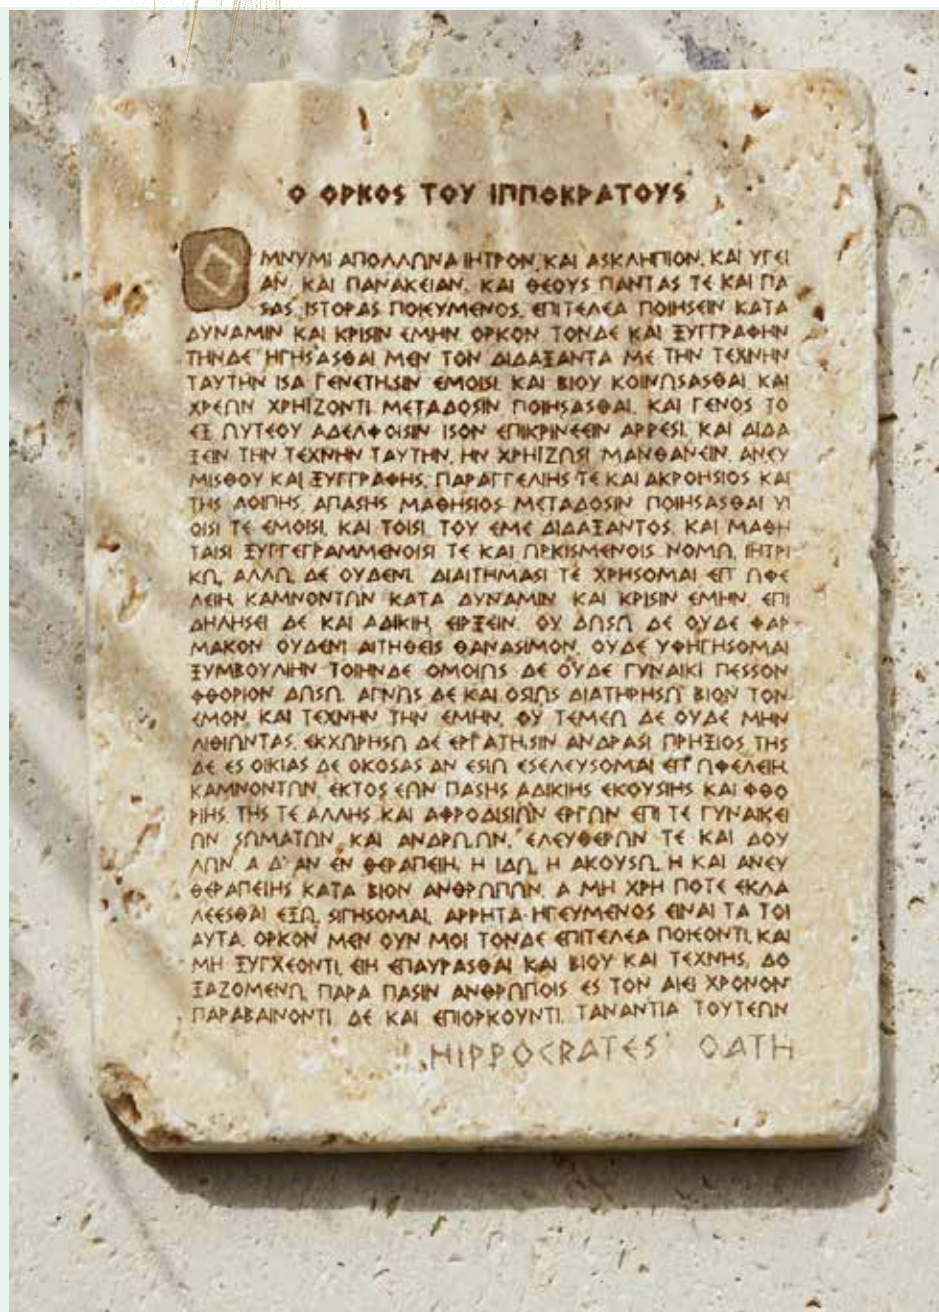 Ο ΟΡΚΟΣ ΤΟΥ ΙΠΠΟΚΡΑΤΟΥΣ
ΟΜΝΥΜΙ ΑΠΟΛΛΩΝΑ ΙΗΤΡΟΝ, ΚΑΙ ΑΣΚΛΗΠΙΟΝ, ΚΑΙ ΥΓΕΙ
ΑΝ, ΚΑΙ ΠΑΝΑΚΕΙΑΝ, ΚΑΙ ΘΕΟΥΣ ΠΑΝΤΑΣ ΤΕ ΚΑΙ ΠΑ
ΣΑΣ, ΙΣΤΟΡΑΣ ΠΟΙΕΥΜΕΝΟΣ, ΕΠΙΤΕΛΕΑ ΠΟΙΗΣΕΙΝ ΚΑΤΑ
ΔΥΝΑΜΙΝ ΚΑΙ ΚΡΙΣΙΝ ΕΜΗΝ ΟΡΚΟΝ ΤΟΝΔΕ ΚΑΙ ΞΥΓΓΡΑΦΗΝ
ΤΗΝΔΕ ΗΓΗΣΑΣΘΑΙ ΜΕΝ ΤΟΝ ΔΙΔΑΞΑΝΤΑ ΜΕ ΤΗΝ ΤΕΧΝΗΝ
ΤΑΥΤΗΝ ΙΣΑ ΓΕΝΕΤΗΣΙΝ ΕΜΟΙΣΙ, ΚΑΙ ΒΙΟΥ ΚΟΙΝΩΣΑΣΘΑΙ, ΚΑΙ
ΧΡΕΩΝ ΧΡΗΙΖΟΝΤΙ ΜΕΤΑΔΟΣΙΝ ΠΟΙΗΣΑΣΘΑΙ, ΚΑΙ ΓΕΝΟΣ ΤΟ
ΕΞ ΩΥΤΕΟΥ ΑΔΕΛΦΟΙΣΙΝ ΙΣΟΝ ΕΠΙΚΡΙΝΕΕΙΝ ΑΡΡΕΣΙ, ΚΑΙ ΔΙΔΑ
ΞΕΙΝ ΤΗΝ ΤΕΧΝΗΝ ΤΑΥΤΗΝ, ΗΝ ΧΡΗΙΖΩΣΙ ΜΑΝΘΑΝΕΙΝ, ΑΝΕΥ
ΜΙΣΘΟΥ ΚΑΙ ΞΥΓΓΡΑΦΗΣ, ΠΑΡΑΓΓΕΛΙΗΣ ΤΕ ΚΑΙ ΑΚΡΟΗΣΙΟΣ ΚΑΙ
ΤΗΣ ΛΟΙΠΗΣ ΑΠΑΣΗΣ ΜΑΘΗΣΙΟΣ ΜΕΤΑΔΟΣΙΝ ΠΟΙΗΣΑΣΘΑΙ ΥΙ
ΟΙΣΙ ΤΕ ΕΜΟΙΣΙ, ΚΑΙ ΤΟΙΣΙ ΤΟΥ ΕΜΕ ΔΙΔΑΞΑΝΤΟΣ, ΚΑΙ ΜΑΘΗ
ΤΑΙΣΙ ΞΥΓΓΕΓΡΑΜΜΕΝΟΙΣΙ ΤΕ ΚΑΙ ΩΡΚΙΣΜΕΝΟΙΣ ΝΟΜΩ, ΙΗΤΡΙ
ΚΩ, ΑΛΛΩ, ΔΕ ΟΥΔΕΝΙ. ΔΙΑΙΤΗΜΑΣΙ ΤΕ ΧΡΗΣΟΜΑΙ ΕΠ' ΩΦΕ
ΛΕΙΗ, ΚΑΜΝΟΝΤΩΝ ΚΑΤΑ ΔΥΝΑΜΙΝ ΚΑΙ ΚΡΙΣΙΝ ΕΜΗΝ, ΕΠΙ
ΔΗΛΗΣΕΙ ΔΕ ΚΑΙ ΑΔΙΚΙΗ, ΕΙΡΞΕΙΝ. ΟΥ ΔΩΣΩ ΔΕ ΟΥΔΕ ΦΑΡ
ΜΑΚΟΝ ΟΥΔΕΝΙ ΑΙΤΗΘΕΙΣ ΘΑΝΑΣΙΜΟΝ, ΟΥΔΕ ΥΦΗΓΗΣΟΜΑΙ
ΞΥΜΒΟΥΛΙΗΝ ΤΟΙΗΝΔΕ ΟΜΟΙΩΣ ΔΕ ΟΥΔΕ ΓΥΝΑΙΚΙ ΠΕΣΣΟΝ
ΦΘΟΡΙΟΝ ΔΩΣΩ. ΑΓΝΩΣ ΔΕ ΚΑΙ ΟΣΙΩΣ ΔΙΑΤΗΡΗΣΩ ΒΙΟΝ ΤΟΝ
ΕΜΟΝ, ΚΑΙ ΤΕΧΝΗΝ ΤΗΝ ΕΜΗΝ. ΟΥ ΤΕΜΕΩ ΔΕ ΟΥΔΕ ΜΗΝ
ΛΙΘΙΩΝΤΑΣ, ΕΚΧΩΡΗΣΩ ΔΕ ΕΡΓΑΤΗΣΙΝ ΑΝΔΡΑΣΙ ΠΡΗΞΙΟΣ ΤΗΣ
ΔΕ ΕΣ ΟΙΚΙΑΣ ΔΕ ΟΚΟΣΑΣ ΑΝ ΕΣΙΩ ΕΣΕΛΕΥΣΟΜΑΙ ΕΠ' ΩΦΕΛΕΙΗ,
ΚΑΜΝΟΝΤΩΝ, ΕΚΤΟΣ ΕΩΝ ΠΑΣΗΣ ΑΔΙΚΙΗΣ ΕΚΟΥΣΙΗΣ ΚΑΙ ΦΘΟ
ΡΙΗΣ, ΤΗΣ ΤΕ ΑΛΛΗΣ ΚΑΙ ΑΦΡΟΔΙΣΙΩΝ ΕΡΓΩΝ ΕΠΙ ΤΕ ΓΥΝΑΙΚΕΙ
ΩΝ ΣΩΜΑΤΩΝ ΚΑΙ ΑΝΔΡΩ,ΩΝ, ΕΛΕΥΘΕΡΩΝ ΤΕ ΚΑΙ ΔΟΥ
ΛΩΝ Α Δ' ΑΝ ΕΝ ΘΕΡΑΠΕΙΗ, Η ΙΔΩ, Η ΑΚΟΥΣΩ, Η ΚΑΙ ΑΝΕΥ
ΘΕΡΑΠΕΙΗΣ ΚΑΤΑ ΒΙΟΝ ΑΝΘΡΩΠΩΝ, Α ΜΗ ΧΡΗ ΠΟΤΕ ΕΚΛΑ
ΛΕΕΣΘΑΙ ΕΞΩ, ΣΙΓΗΣΟΜΑΙ, ΑΡΡΗΤΑ ΗΓΕΥΜΕΝΟΣ ΕΙΝΑΙ ΤΑ ΤΟΙ
ΑΥΤΑ. ΟΡΚΟΝ ΜΕΝ ΟΥΝ ΜΟΙ ΤΟΝΔΕ ΕΠΙΤΕΛΕΑ ΠΟΙΕΟΝΤΙ, ΚΑΙ
ΜΗ ΞΥΓΧΕΟΝΤΙ, ΕΙΗ ΕΠΑΥΡΑΣΘΑΙ ΚΑΙ ΒΙΟΥ ΚΑΙ ΤΕΧΝΗΣ, ΔΟ
ΞΑΖΟΜΕΝΩ, ΠΑΡΑ ΠΑΣΙΝ ΑΝΘΡΩΠΟΙΣ ΕΣ ΤΟΝ ΑΙΕΙ ΧΡΟΝΟΝ
ΠΑΡΑΒΑΙΝΟΝΤΙ ΔΕ ΚΑΙ ΕΠΙΟΡΚΟΥΝΤΙ, ΤΑΝΑΝΤΙΑ ΤΟΥΤΕΩΝ
HIPPOCRATES' OATH